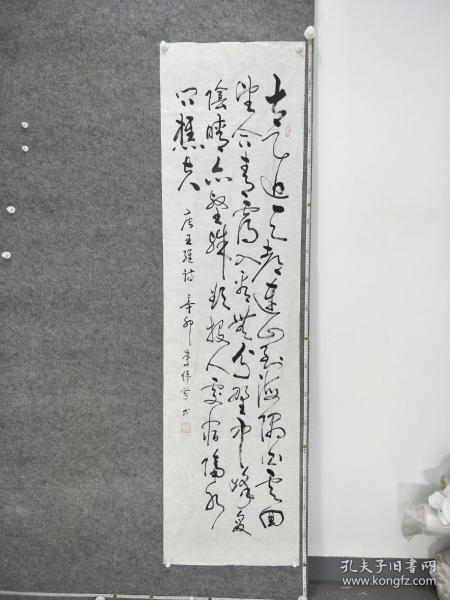 太乙近天都連山到海隅白雲回
望合青靄入看無分野中峰變
陰晴众壑殊欲投人處宿隔水
问樵夫
唐王維詩 辛卯 李伟 书
孔夫子旧书网
www.kongfz.com